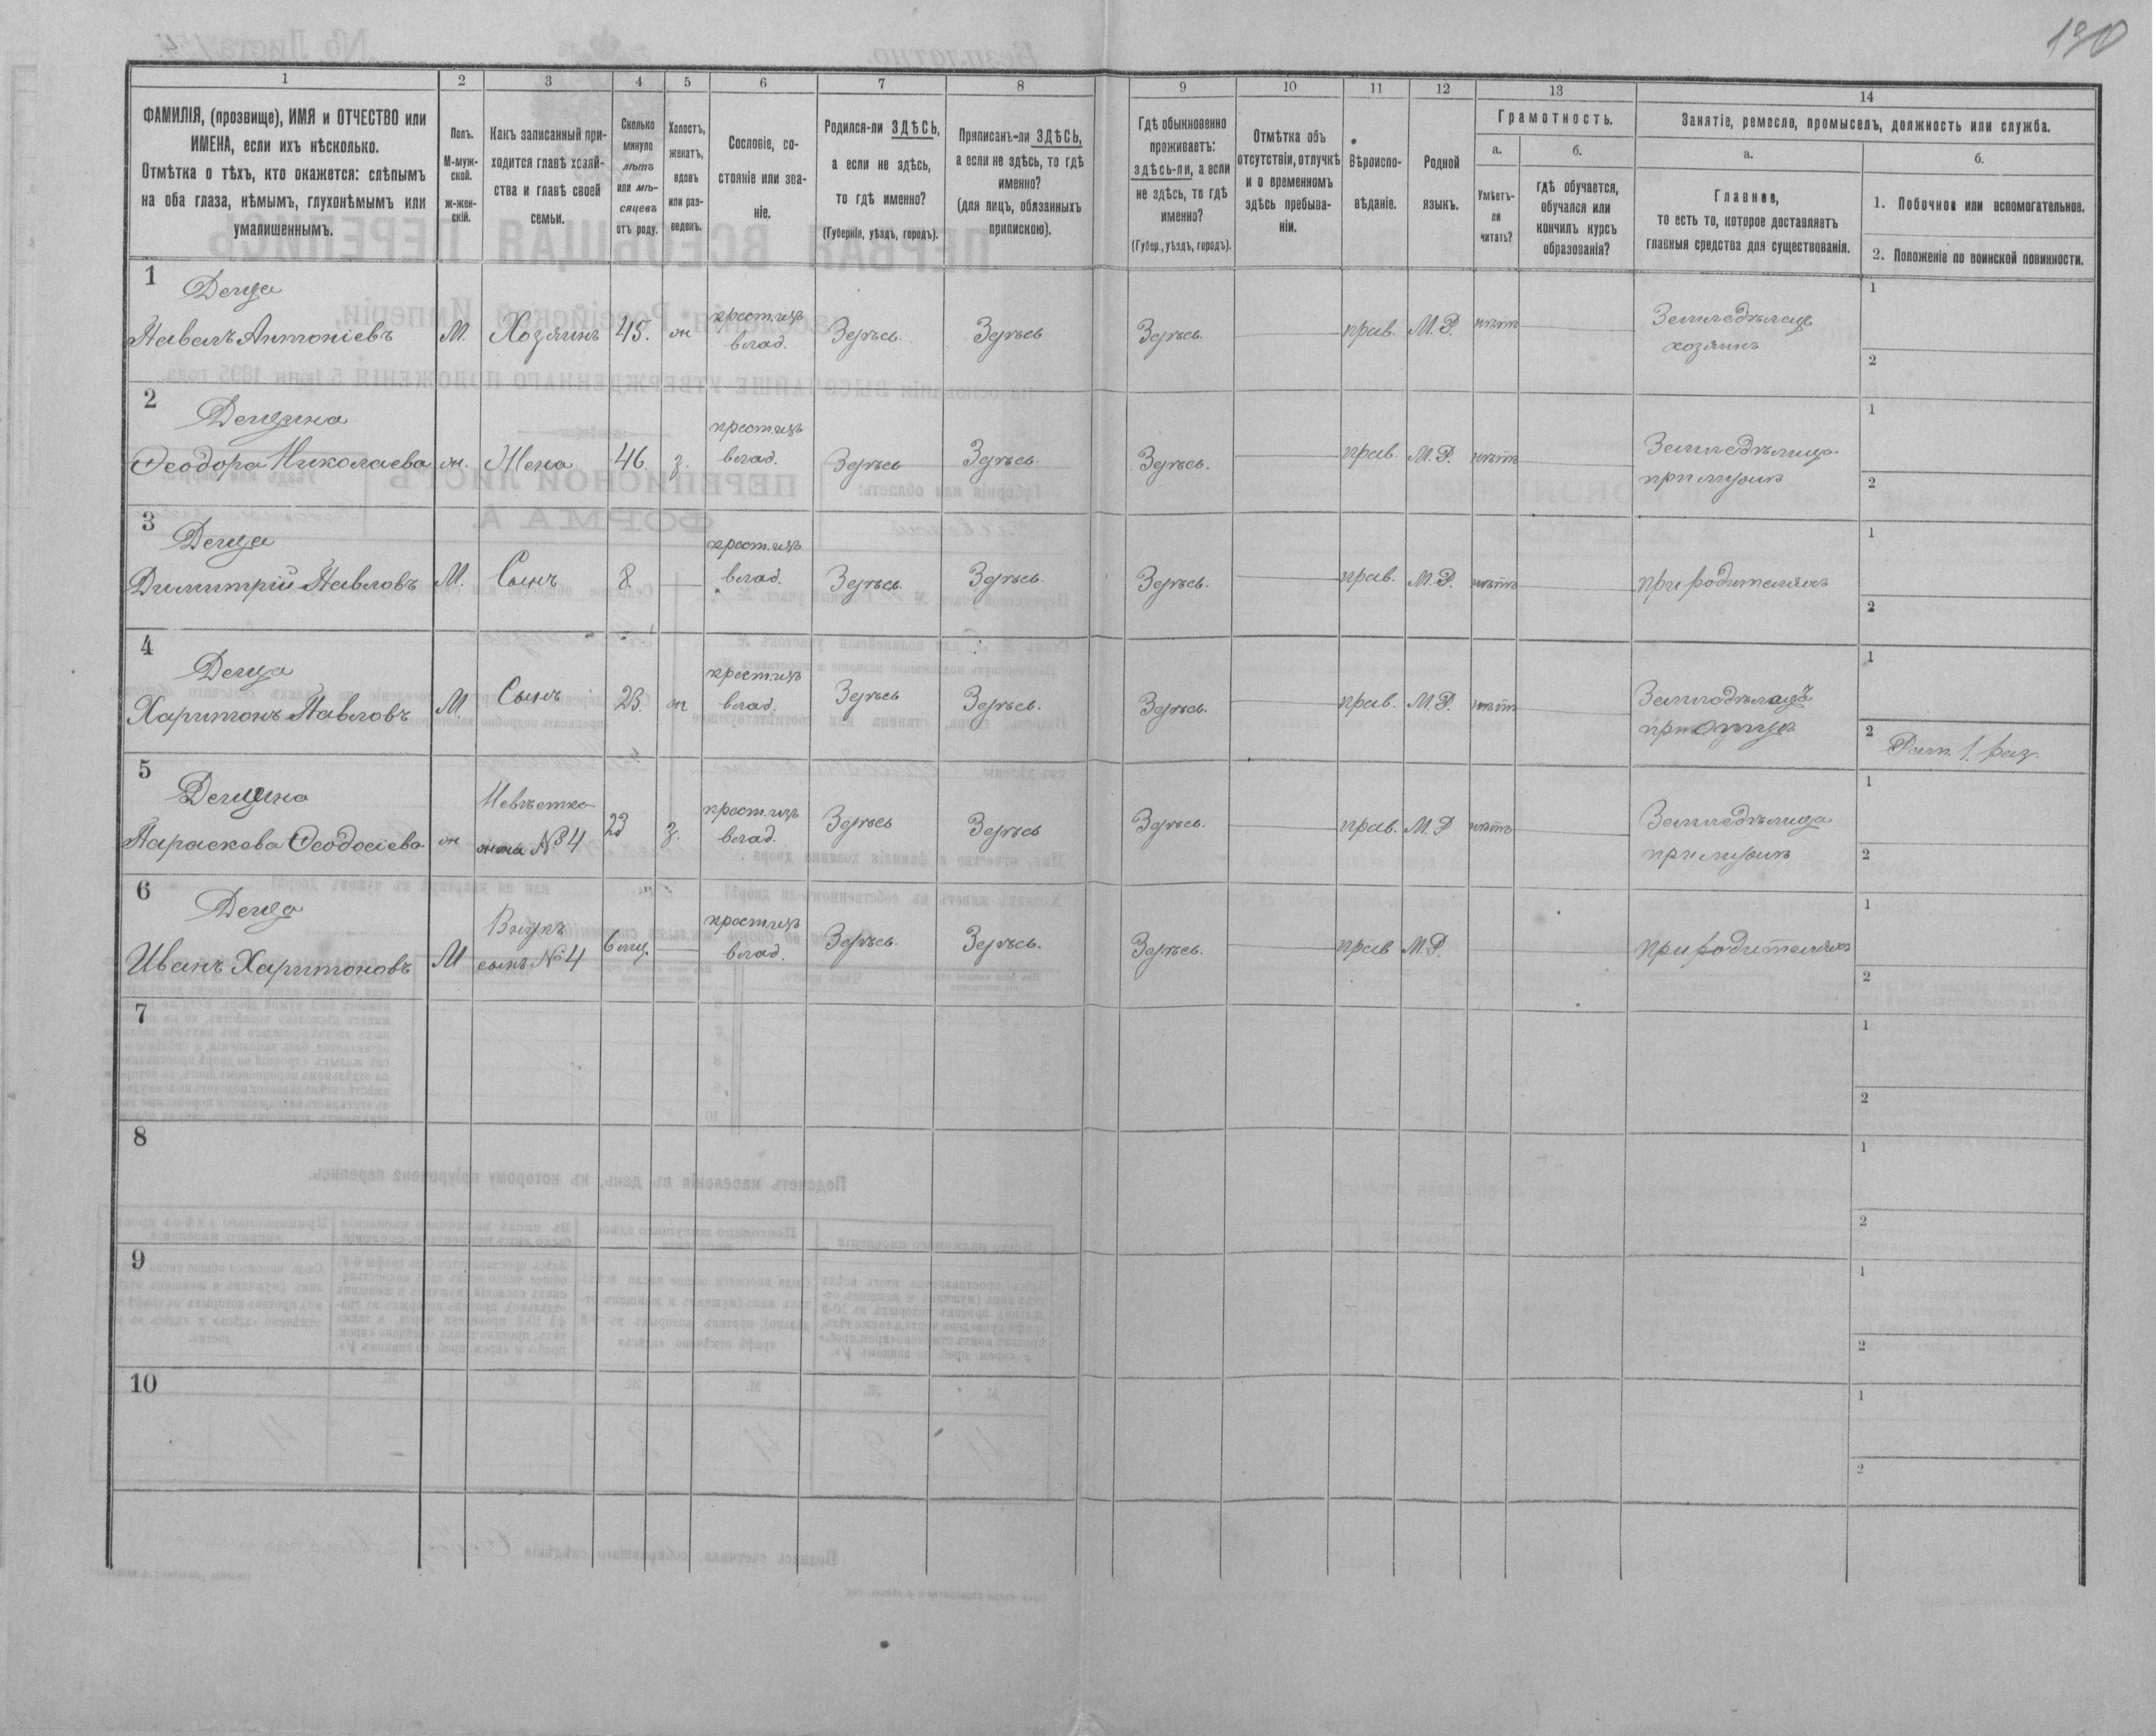 190
1
2
3
4
5
6
7
8
9
10
11
12
13
14
ФАМИЛІЯ, (прозвище), ИМЯ и ОТЧЕСТВО или
ИМЕНА, если ихъ нѣсколько.
Отмѣтка о тѣхъ, кто окажется: слѣпымъ
на оба глаза, нѣмымъ, глухонѣмымъ или
умалишеннымъ.
Полъ.
М-муж-
ской.
ж-жен-
скій.
Какъ записанный при-
ходится главѣ хозяй-
ства и главѣ своей
семьи.
Сколько
минуло
лѣтъ
или мѣ-
сяцевъ
отъ роду.
Холостъ,
женатъ,
вдовъ
или раз-
веденъ.
Сословіе, со-
стояніе или зва-
ніе.
Родился-ли ЗДѢСЬ,
а если не здѣсь,
то гдѣ именно?
(Губернія, уѣздъ, городъ).
Приписанъ-ли ЗДѢСЬ,
а если не здѣсь, то гдѣ
именно?
(для лицъ, обязанныхъ
припискою).
Гдѣ обыкновенно
проживаетъ:
здѣсь-ли, а если
не здѣсь, то гдѣ
именно?
(Губер., уѣздъ, городъ).
Отмѣтка объ
отсутствіи, отлучкѣ
и о временномъ
здѣсь пребыва-
ніи.
Вѣроиспо-
вѣданіе.
Родной
языкъ.
Грамотность.
а.
Умѣетъ-
ли
читать?
б.
гдѣ обучается,
обучался или
кончилъ курсъ
образованія?
Занятіе, ремесло, промыселъ, должность или служба.
а.
Главное,
то есть то, которое доставляетъ
главныя средства для существованія.
б.
1. Побочное или вспомогательное.
2. Положеніе по воинской повинности.
1
Павелъ Антоніевъ
М.
Хозяинъ
45.
ж
крест. изъ
влад.
Здѣсь.
Здѣсь
Здѣсь.
прав.
М. Р.
нѣтъ
Земледѣлецъ
хозяинъ
1
2
2
Ѳеодора Николаева
ж.
Жена
46.
з.
крест. изъ
влад.
Здѣсь
Здѣсь.
Здѣсь.
прав.
М. Р.
нѣтъ
Земледѣлица
при мужѣ
1
2
3
Димитрій Павловъ
М.
Сынъ
8.
крест. изъ
влад.
Здѣсь.
Здѣсь.
Здѣсь.
прав.
М. Р.
нѣтъ
при родителяхъ
1
2
4
Харитонъ Павловъ
М.
Сынъ
23.
ж
крест. изъ
влад.
Здѣсь
Здѣсь.
Здѣсь.
прав.
М. Р.
нѣтъ
Земледѣлецъ
при отцѣ
1
2
Рат. 1. раз.
5
Параскева Ѳеодосіева
ж
Невѣстка
жена №4
23
з.
крест. изъ
влад.
Здѣсь
Здѣсь
Здѣсь.
прав.
М. Р
нѣтъ
Земледѣлица
при мужѣ
1
2
6
Иванъ Харитоновъ
М
Внукъ
сынъ №4
6 мц.
крест. изъ
влад.
Здѣсь.
Здѣсь.
Здѣсь.
прав
М. Р.
при родителяхъ
1
2
7
1
2
8
1
2
9
1
2
10
1
2